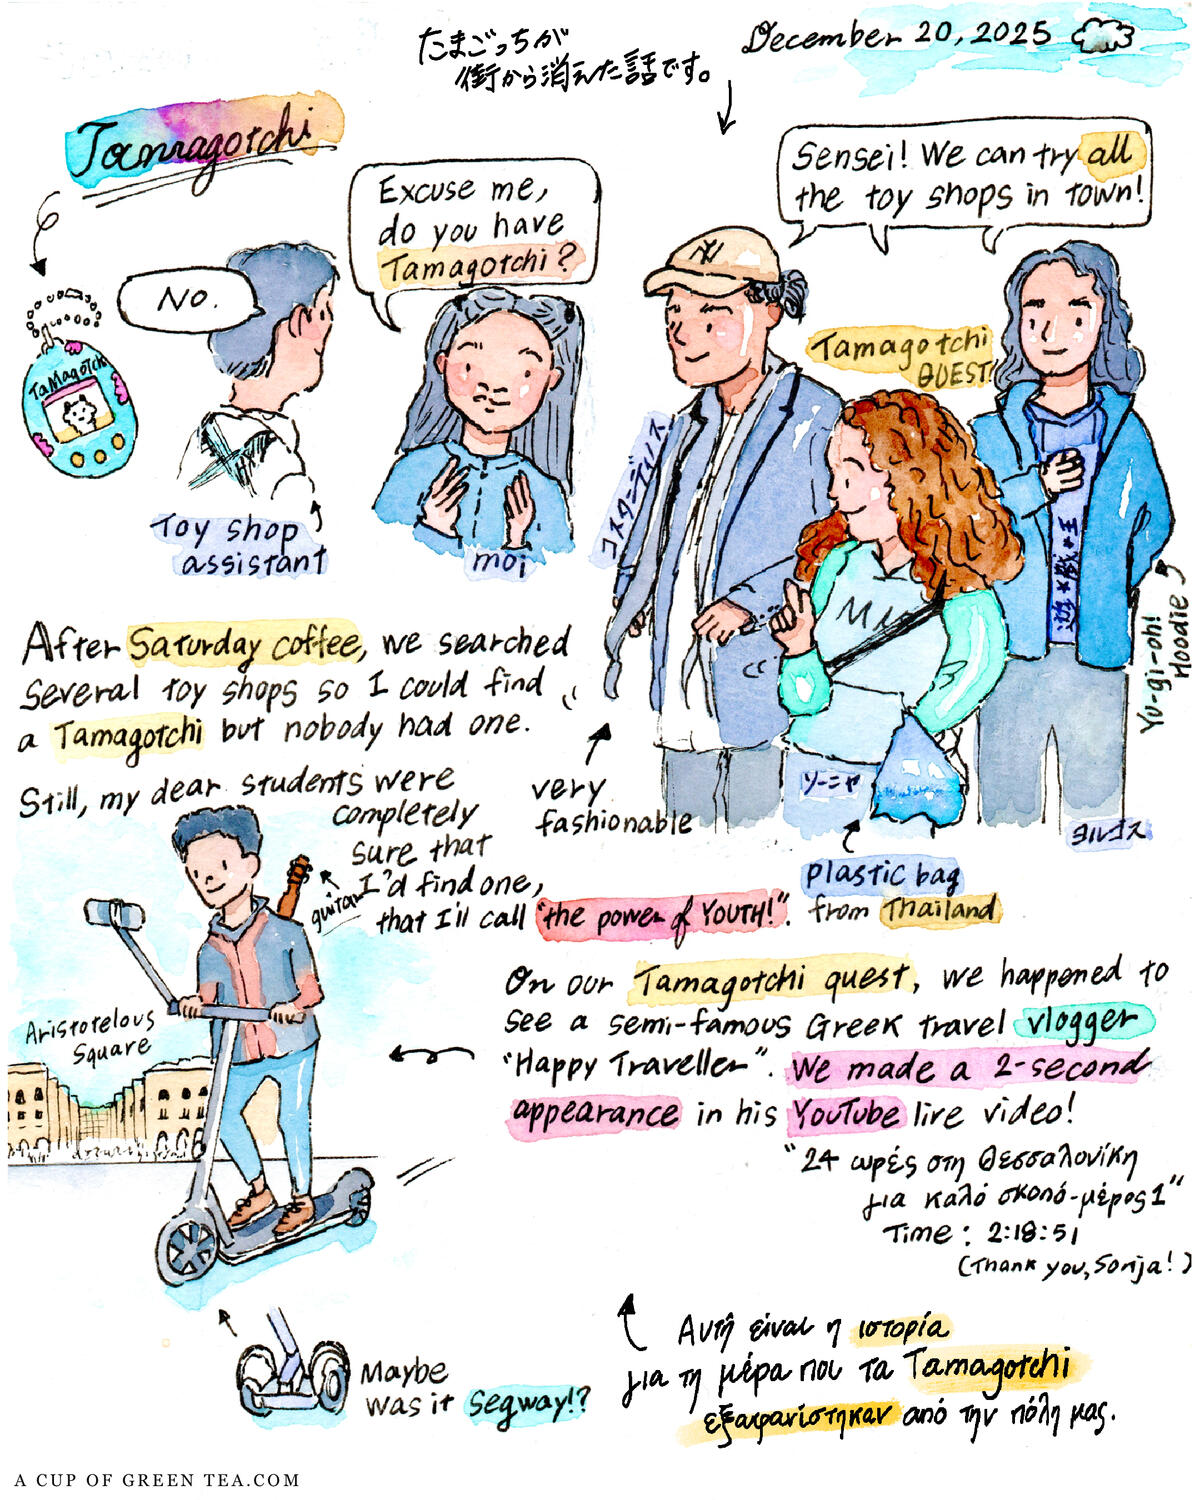 たまごっちが
街から消えた話です。
December 20, 2025
Tamagotchi
Sensei! We can try all
the toy shops in town!
Excuse me,
do you have
Tamagotchi?
No.
TaMagoTchi
Tamagotchi
QUEST!
コスタンディノス
Toy shop
assistant
moi
遊☆戯☆王
Yu-gi-oh!
Hoodie
After Saturday coffee, we searched
several toy shops so I could find
a Tamagotchi but nobody had one.
Still, my dear students were
completely
sure that
I'd find one,
that I'll call "the power of YOUTH!".
guitar
very
fashionable
ソーニャ
ヨルゴス
plastic bag
from Thailand
On our Tamagotchi quest, we happened to
see a semi-famous Greek travel vlogger
"Happy Traveller". We made a 2-second
appearance in his YouTube live video!
Aristotelous
Square
"24 ωρές στη Θεσσαλονίκη
για καλό σκοπό-μέρος 1"
Time: 2:18:51
(Thank you, Sonja!)
Maybe
was it segway!?
Αυτή είναι η ιστορία
για τη μέρα που τα Tamagotchi
εξαφανίστηκαν από την πόλη μας.
A CUP OF GREEN TEA.COM